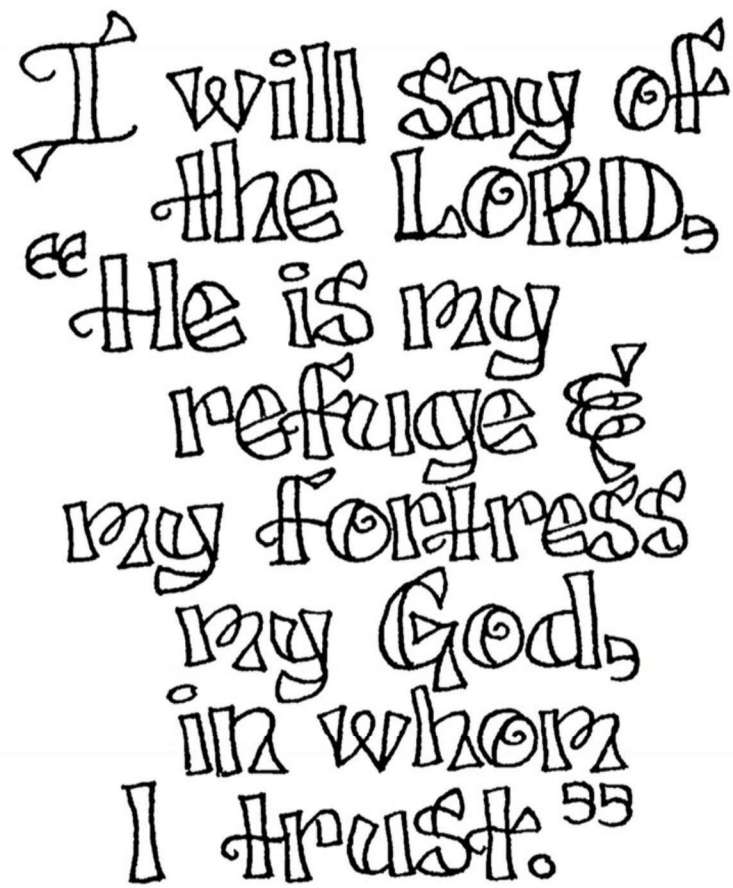 I will say of
the LORD,
“He is my
refuge &
my fortress
my God,
in whom
I trust.”